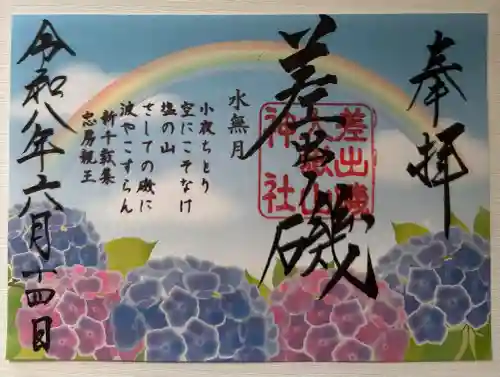 奉拝
差出磯
差出磯
大嶽山
神社
水無月
小夜ちとり
空にこそなけ
塩の山
さしての磯に
波やこすらん
新千載集
忠房親王
令和八年六月十四日